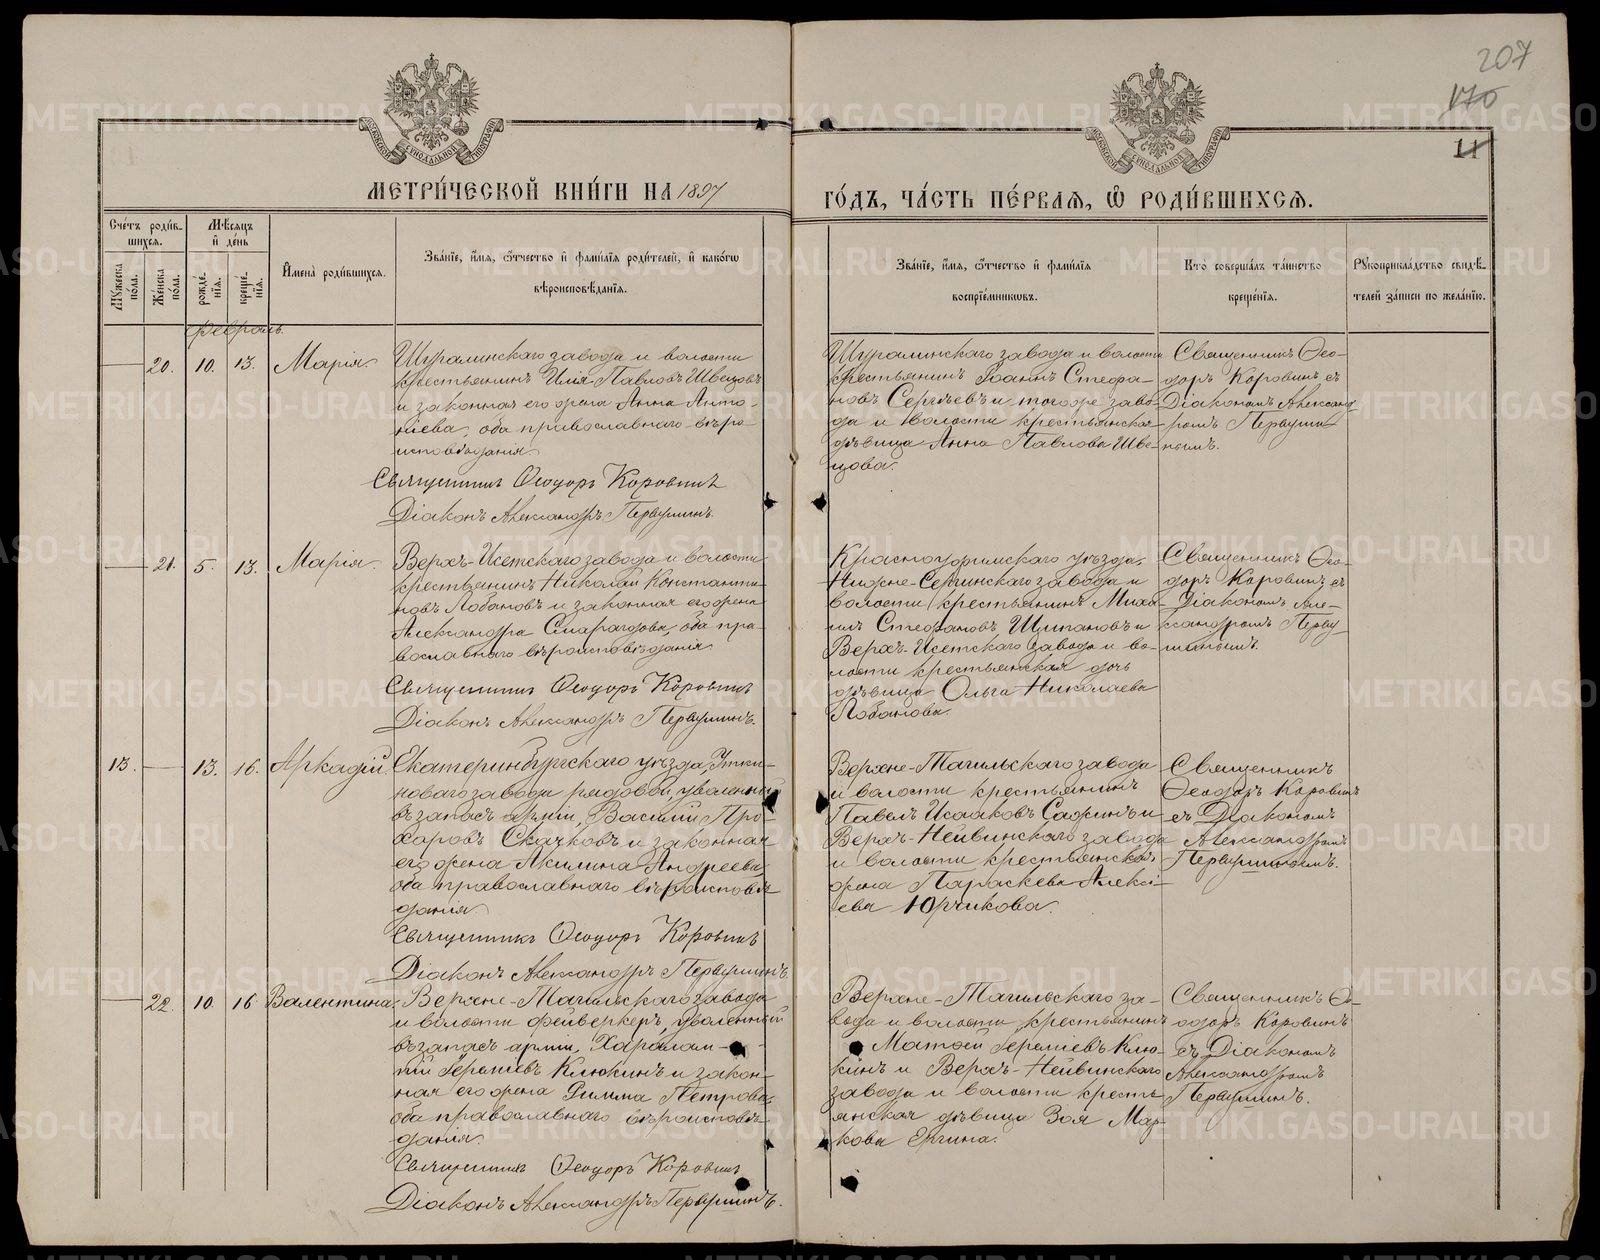 207
170
11
МОСКОВСКОЙ СѴНОДАЛЬНОЙ ТИПОГРАФІИ
МОСКОВСКОЙ СѴНОДАЛЬНОЙ ТИПОГРАФІИ
МЕТРИ́ЧЕСКОЙ КНИ́ГИ НА 1897
ГО́ДЪ, ЧА́СТЬ ПЕ́РВАѦ, Ѽ РОДИ́ВШИХСѦ.
Сче́тъ роди́в-
шихсѧ.
Мѣ́сяцъ
и҆ де́нь
Мꙋжеска по́ла.
Же́нска по́ла.
рожде́-нїѧ.
креще́-нїѧ.
И҆мена̀ роди́вшихсѧ.
Зва́нїе, и҆́мѧ, ѻ҆́тчество и҆ фамі́лїѧ роди́телей, и҆ како́гѡ
вѣроисповѣ́данїѧ.
Зва́нїе, и҆́мѧ, ѻ҆́тчество и҆ фамі́лїѧ
воспрїе́мникѡвъ.
Кто̀ соверша́лъ та́инство
креще́нїѧ.
Рꙋкоприкла́дство свидѣ́-
телей за́писи по жела́нїю.
Февраль.
20. 10. 13. Марія.
Шуралинскаго завода и волости
крестьянинъ Илія Павловъ Швецовъ
и законная его жена Анна Анто-
ніева, оба православнаго вѣро-
исповѣданія.
Священникъ Ѳеодоръ Коровинъ
Діаконъ Александръ Первушинъ.
Шуралинскаго завода и волости
крестьянинъ Іоаннъ Стефа-
новъ Сергѣевъ и тогоже заво-
да и волости крестьянская
дѣвица Анна Павлова Шве-
цова.
Священникъ Ѳео-
доръ Коровинъ съ
Діакономъ Александ-
ромъ Первуши-
нымъ.
21. 5. 13. Марія.
Верхъ-Исетскаго завода и волости
крестьянинъ Николай Константи-
новъ Лобановъ и законная его жена
Александра Смарагдова, оба пра-
вославнаго вѣроисповѣданія.
Священникъ Ѳеодоръ Коровинъ
Діаконъ Александръ Первушинъ.
Красноуфимскаго уѣзда,
Нижне-Сергинскаго завода и
волости крестьянинъ Миха-
илъ Стефановъ Щипановъ и
Верхъ-Исетскаго завода и во-
лости крестьянская дочь
дѣвица Ольга Николаева
Лобанова.
Священникъ Ѳео-
доръ Коровинъ съ
Діакономъ Але-
ксандромъ Перву-
шинымъ.
13. 13. 16. Аркадій.
Екатеринбургскаго уѣзда, Утки-
новаго завода рядовой, уволенный
въ запасъ арміи, Василій Про-
харовъ Скачковъ и законная
его жена Акилина Андреева,
оба православнаго вѣроисповѣ-
данія.
Священникъ Ѳеодоръ Коровинъ
Діаконъ Александръ Первушинъ.
Верхне-Тагильскаго завода
и волости крестьянинъ
Павелъ Исааковъ Сажинъ и
Верхъ-Нейвинскаго завода
и волости крестьянская
жена Параскева Алексі-
ева Юрчикова.
Священникъ
Ѳеодоръ Коровинъ
съ Діакономъ
Александромъ
Первушинымъ.
22. 10. 16 Валентина.
Верхне-Тагильскаго завода
и волости фейверкеръ, уволенный
въ запасъ арміи, Харалам-
пій Іереміевъ Клюкинъ и закон-
ная его жена Римма Петрова,
оба православнаго вѣроисповѣ-
данія.
Священникъ Ѳеодоръ Коровинъ
Діаконъ Александръ Первушинъ.
Верхне-Тагильскаго за-
вода и волости, крестьянинъ
Матѳей Іереміевъ Клю-
кинъ и Верхъ-Нейвинскаго
завода и волости кресть-
янская дѣвица Зоя Мар-
кова Ергина.
Священникъ Ѳе-
одоръ Коровинъ
съ Діакономъ
Александромъ
Первушинъ.
METRIKI.GASO-URAL.RU